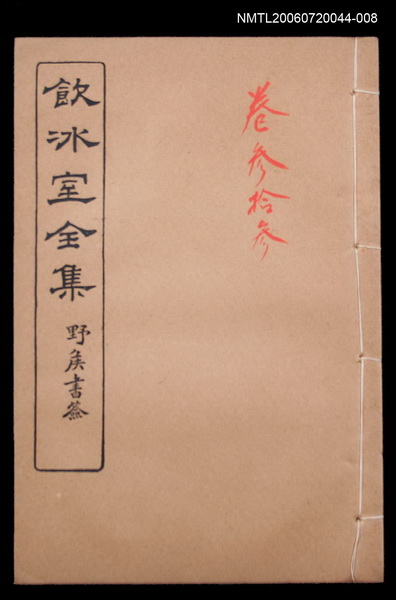 NMTL20060720044-008
卷参拾参
飲冰室全集
野矦書簽